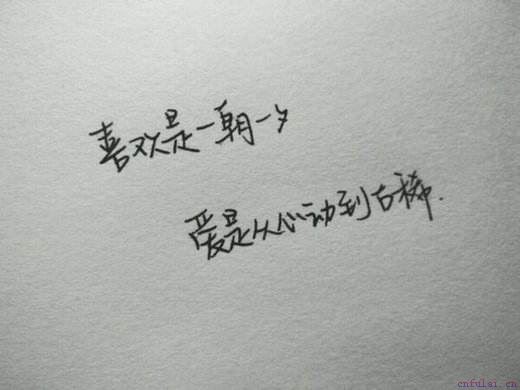 喜欢是一朝一夕
爱是从心动到古稀.
cnfulai.cn